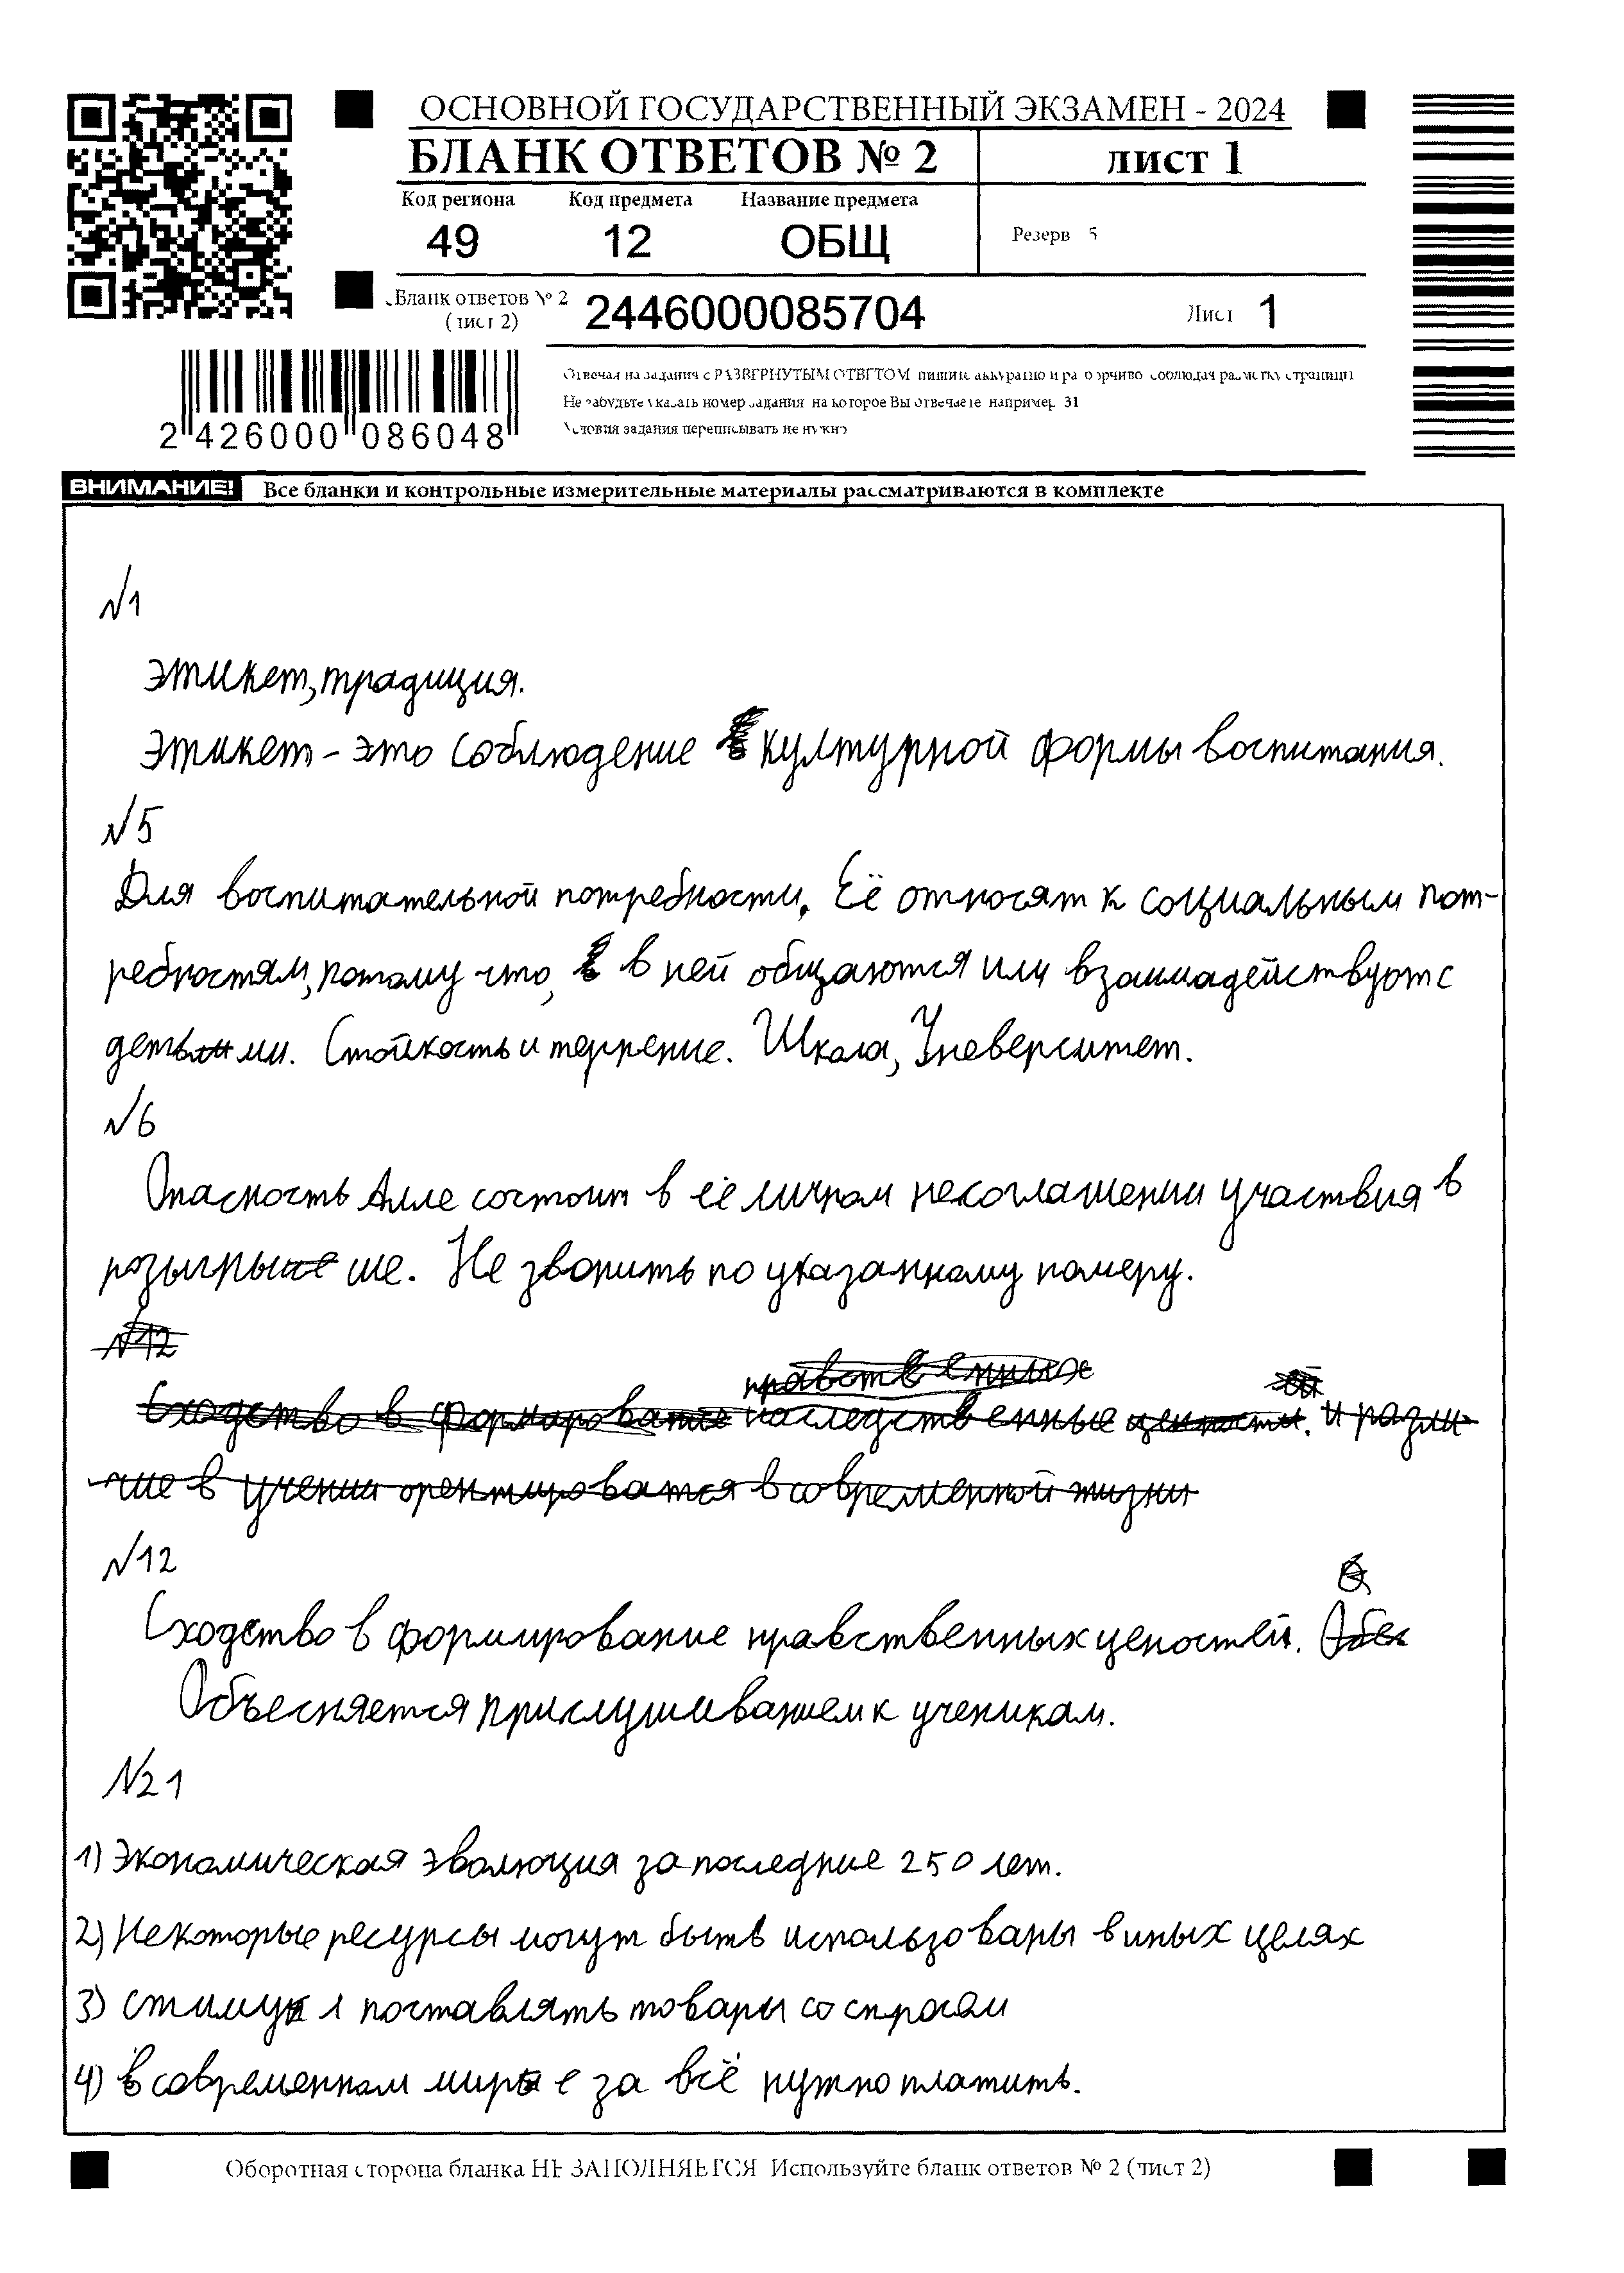 ОСНОВНОЙ ГОСУДАРСТВЕННЫЙ ЭКЗАМЕН - 2024
БЛАНК ОТВЕТОВ № 2
лист 1
Код региона Код предмета Название предмета
49 12 ОБЩ
Резерв 5
Бланк ответов № 2
(лист 2)
2446000085704
Лист 1
2 426000 086048
Отвечая на задания с РАЗВЕРНУТЫМ ОТВЕТОМ пишите аккуратно и разборчиво соблюдая разметку страницы
Не забудьте указать номер задания на которое Вы отвечаете например 31
Условия задания переписывать не нужно
ВНИМАНИЕ! Все бланки и контрольные измерительные материалы рассматриваются в комплекте
№1
этикет, традиция.
этикет - это соблюдение култturной формы воспитания.
№5
Для воспитательной потребности. Её относят к социальным пот-
ребностям, потому что, в ней общаются или взаимадействуют с
детьми. Стойкость и терпение. Школа, Уневерситет.
№6
Опасность Алле состоит в её личном несоглашении участвия в
розыгрыше. Не звонить по указанному номеру.
№12
Сходство в формирование наследственные нравственных ценности. и разли-
чие в учении орентироватся в современной жизни
№12
Сходство в формирование нравственных ценостей. Обес
Объесняется прислушиванием к ученикам.
№21
1) Экономическая эволюция за последние 250 лет.
2) Некоторые ресурсы могут быть использованы в иных целях
3) стимул поставлять товары со спросом
4) в современном мире за всё нужно платить.
Оборотная сторона бланка НЕ ЗАПОЛНЯЕТСЯ Используйте бланк ответов № 2 (лист 2)